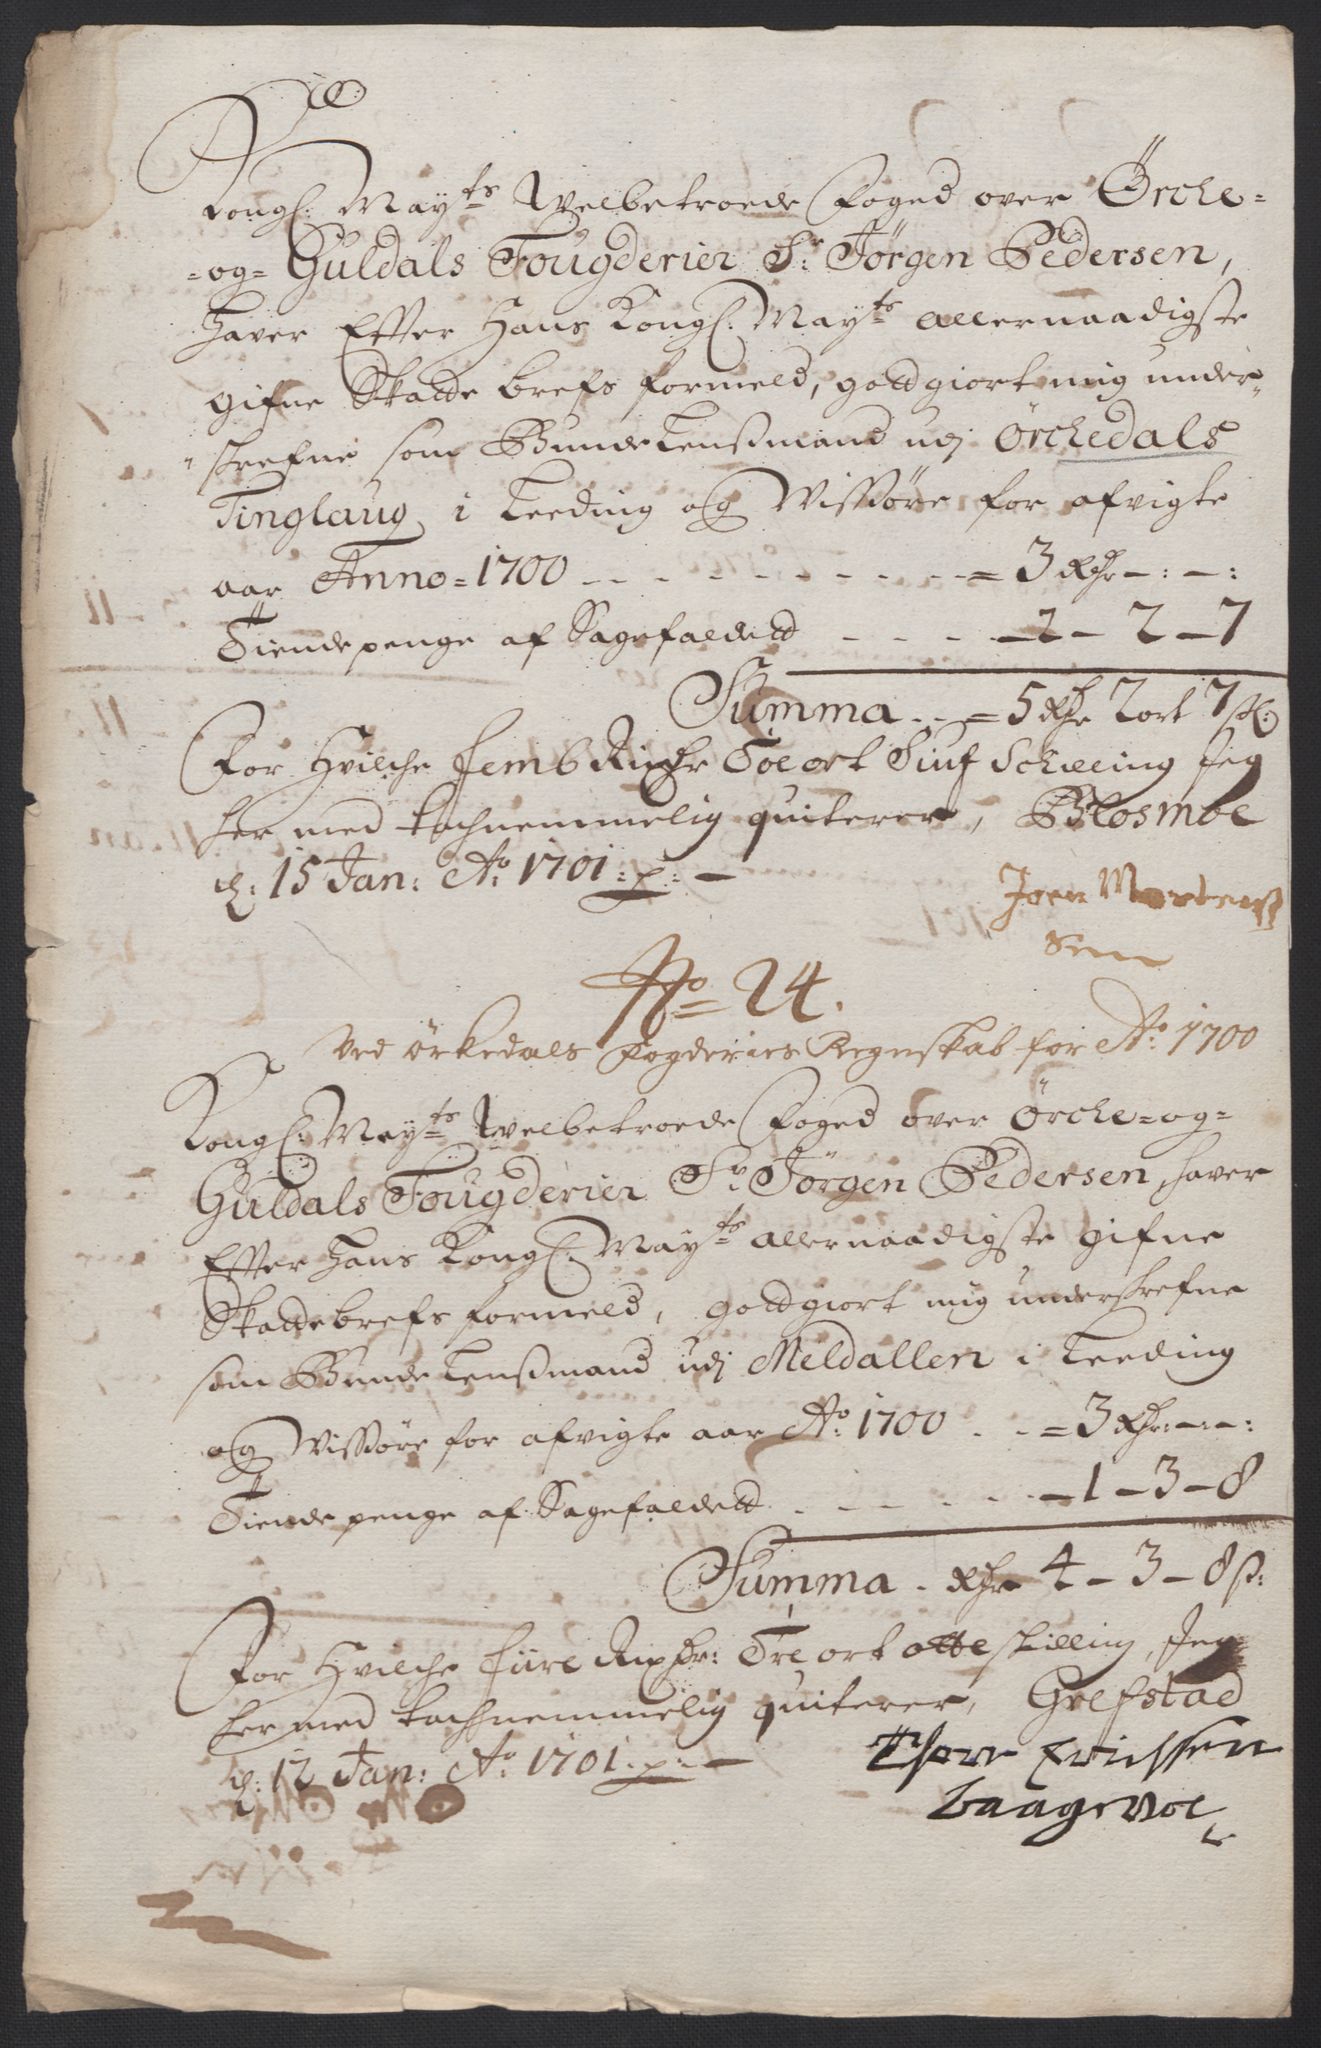 Kongl: Mayts Welbetroede Foged over Örche=
=og= Guldals Fougderier Sr: Jörgen Pedersen,
Haver Effter Hans Kongl: Mayts allernaadigste
gifne Skatte brefs formeld, gottgiort mig under-
skrefne som Bunde Lenßmand udj Örchedals
Tinglaug, i Leeding og Wissöre for afvigte
aar Anno=1700 - - - - - - - - - = 3 Rdr -:-:
Tiende penge af Sagefaldett - - - - 2 - 2 - 7
Summa - - = 5 Rdr 2 ort 7 sk:
For Hvilche femb Rixdr Toe ort Siuf Schilling Jeg
her med tachnemmelig quiterer, Blosmoe
d: 15 Jan: Ao: 1701:
Joen Mortenß
sen
No= 24.
Ved örkedals Fogderies Regnskab for Ao: 1700
Kongl: Mayts Welbetroede Foged over Örche=og=
Guldals Fougderier Sr: Jörgen Pedersen, haver
Effter Hans Kongl: Mayts allernaadigste gifne
Skattebrefs formeld, gottgiort mig underskrefne
som Bunde Lenßmand udj Meldallen i Leeding
og Wissöre for afvigte aar Ao: 1700 - - = 3 Rdr:-:-:
Tiende penge af Sagefaldett - - - - - 1 - 3 - 8
Summa - Rdr 4 - 3 - 8 ß:
For Hvilche fiire Rixdr: Tre ort otte skilling, Jeg
her med tachnemmelig quiterer, Grefstad
d: 12 Jan: Ao: 1701:
Thore Erichssen